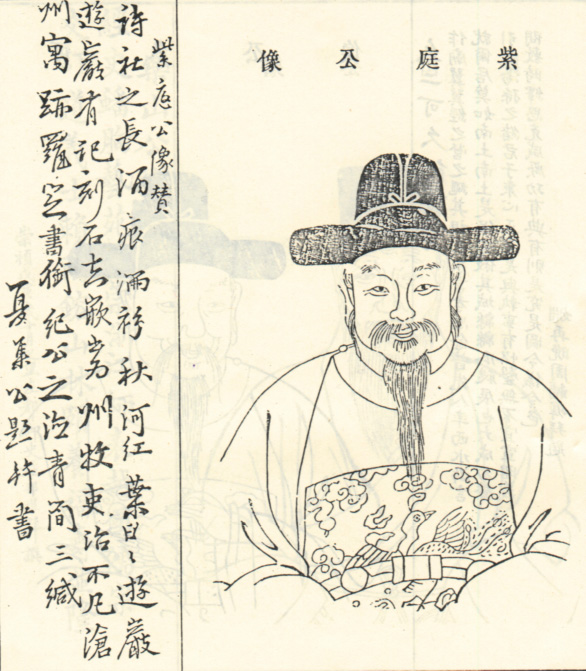 紫庭公像
紫庭公像贊
詩社之長酒痕滿衫秋河紅葉日〻遊巖
遊巖有記刻石嵌州牧吏治不凡滄
州寓跡羅書銜紀公之治青简三緘
公題并書